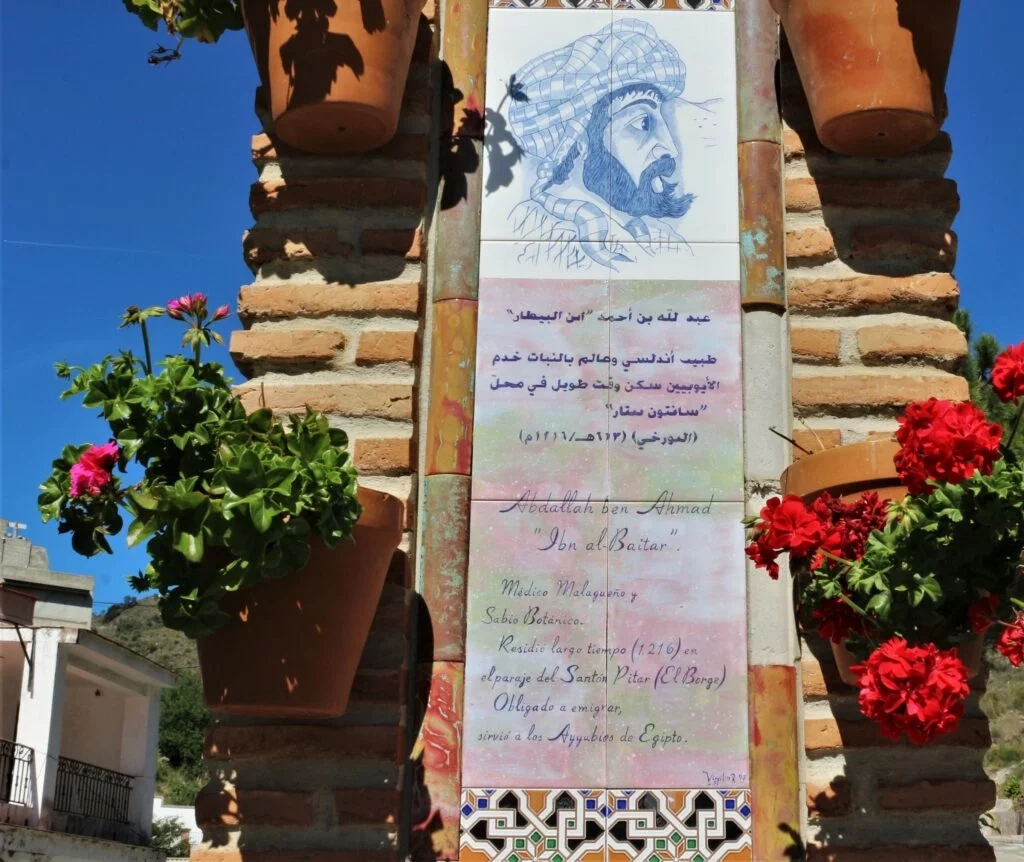 عبد لله بن أحمد "ابن البيطار"
طبيب أندلسي وعالم بالنبات خدم
الأيوبيين سكن وقت طويل في محلّ
"سانتون ستار"
(المورخي) (٦١٣هـ/١٢١٦م)
Abdallah ben Ahmad
"Ibn al-Baitar".
Médico Malagueño y
Sabio Botánico.
Residió largo tiempo (1.216) en
el paraje del Santón Pitar (El Borge)
Obligado a emigrar,
sirvió a los Ayyubíes de Egipto.